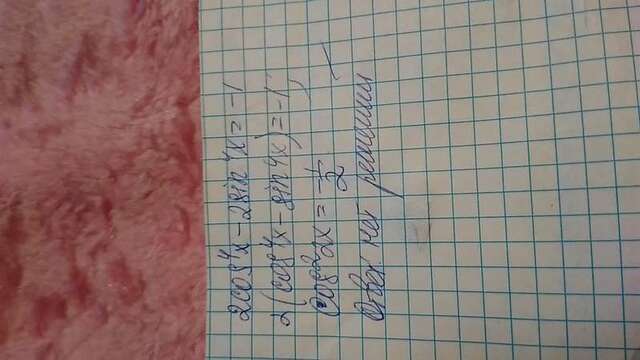 2cos⁴x - 2sin⁴x = -1
2(cos⁴x - sin⁴x) = -1
cos²2x = -1/2
Ответ нет решений